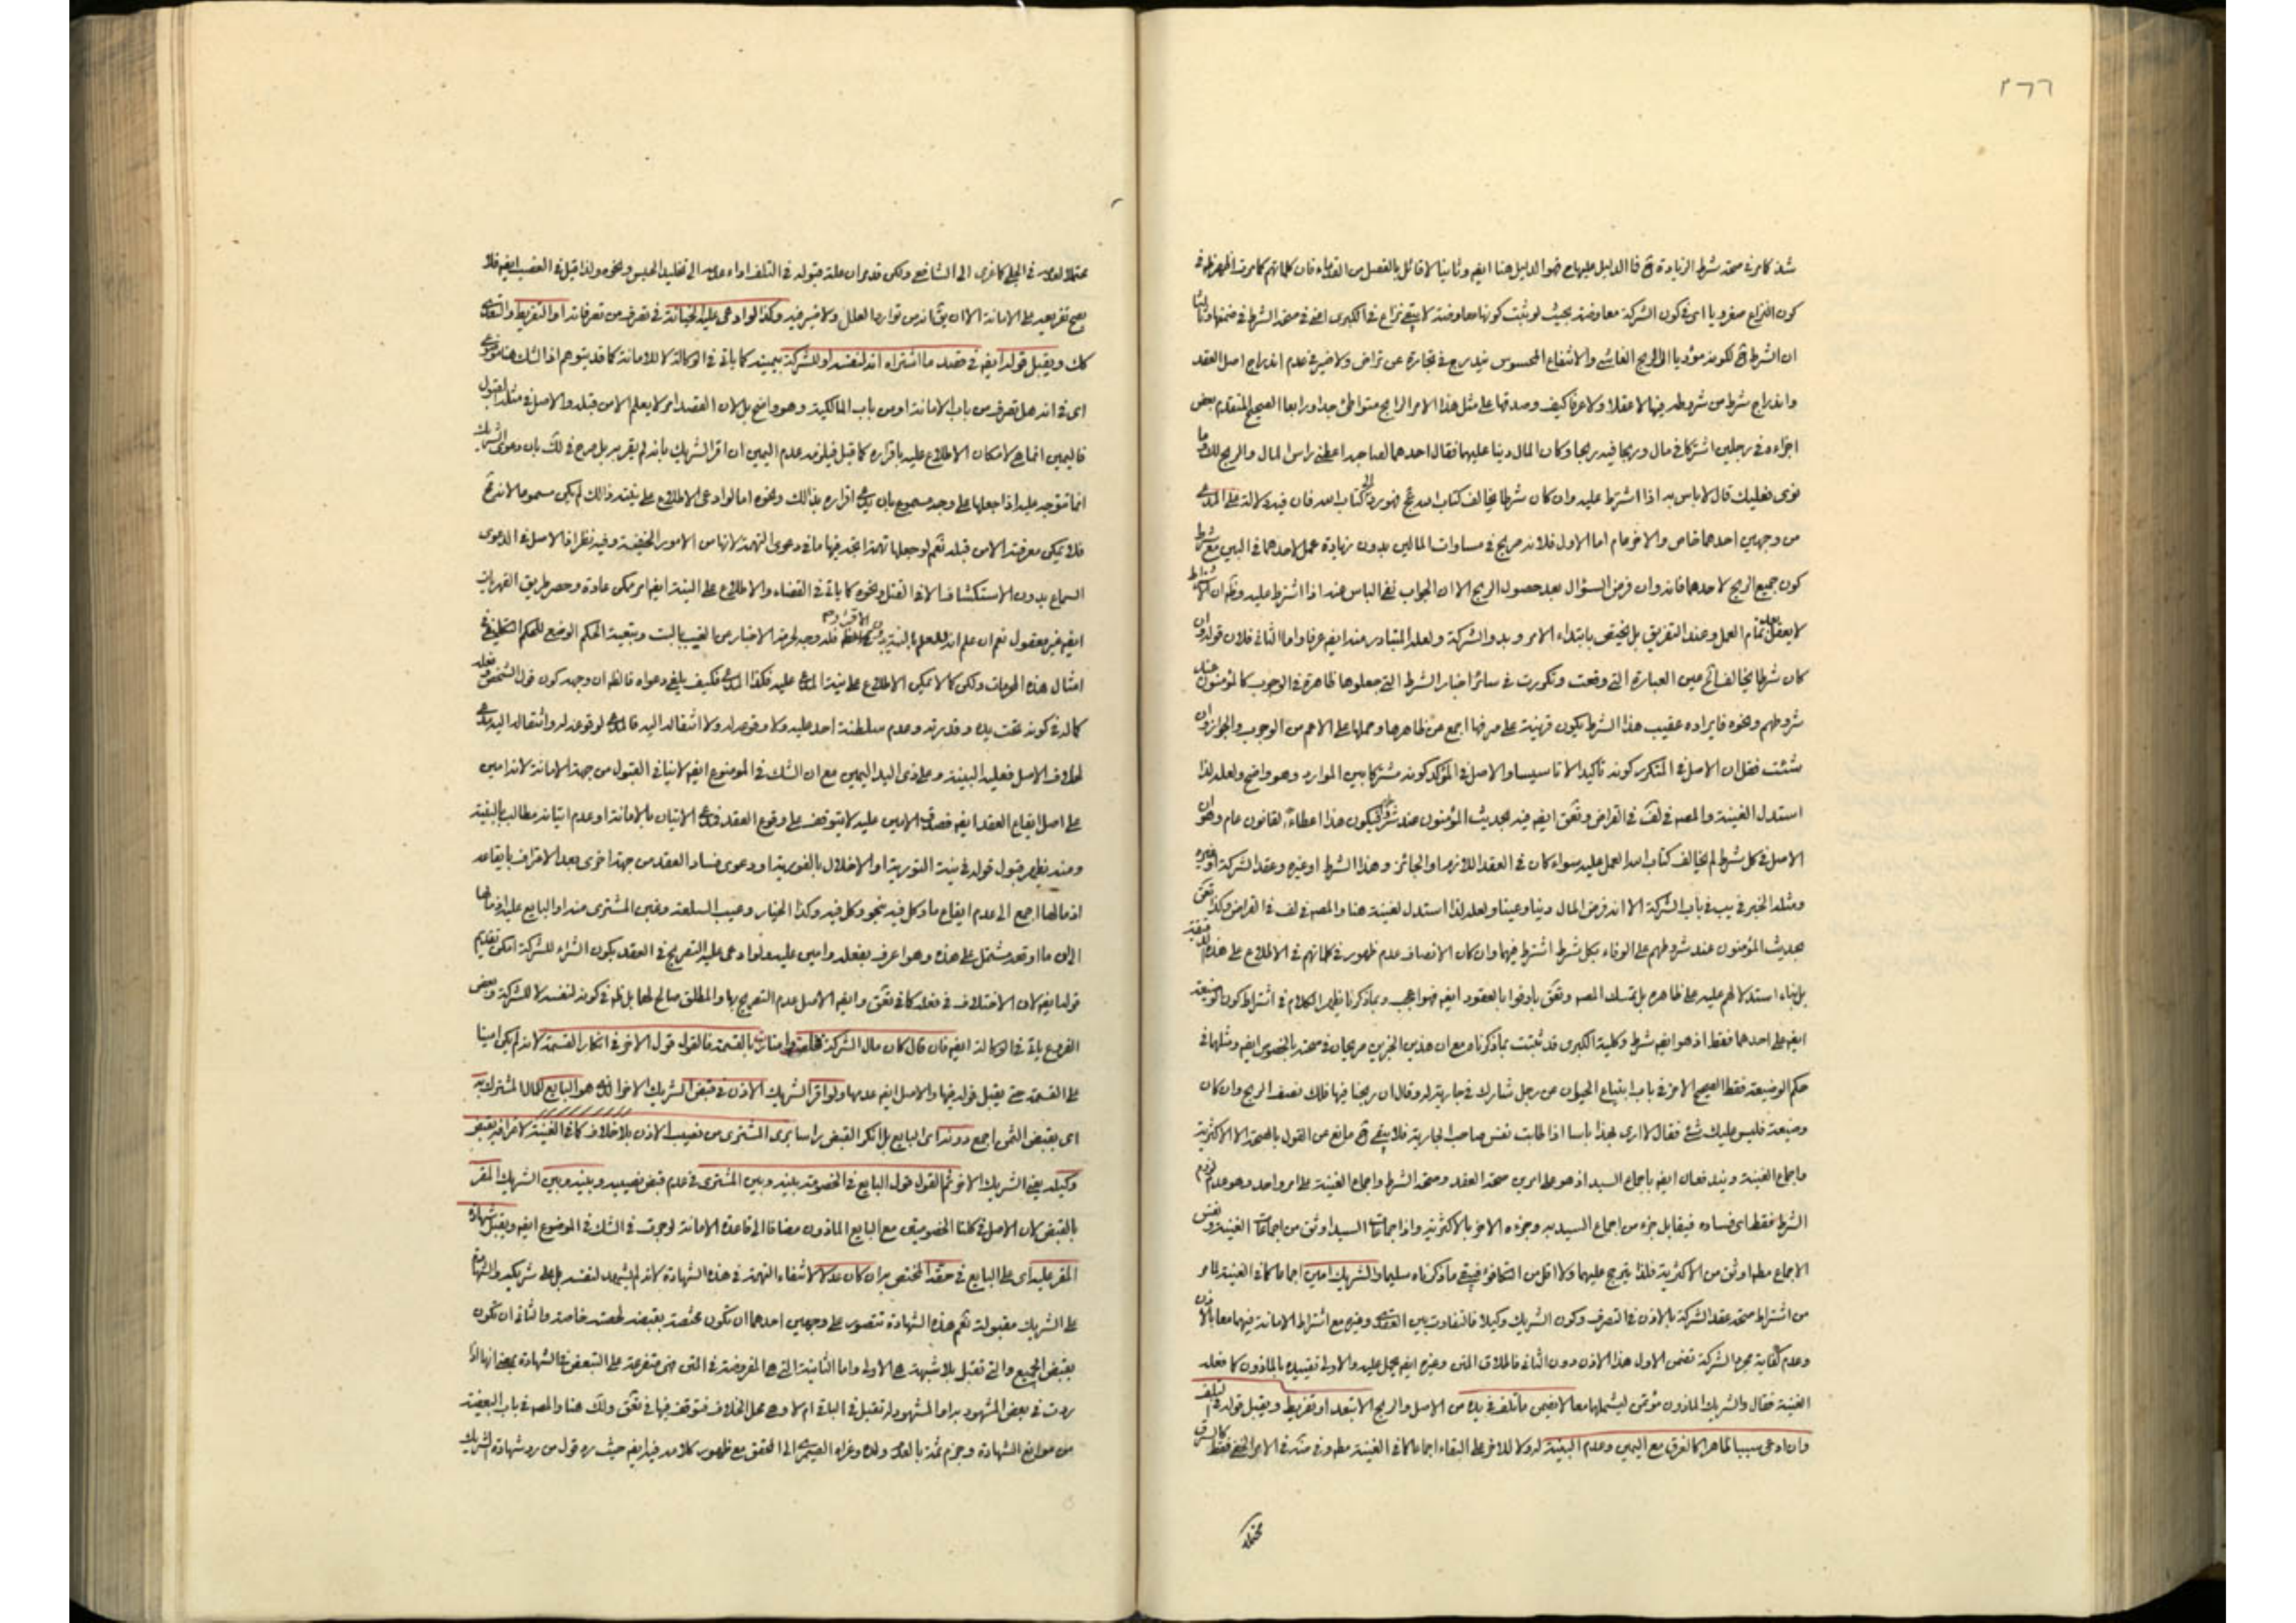 ٢٦٦
كون النزاع صغرويا اى فى كون الشركة معاوضة بحيث لو ثبت كونها معاوضة لا يبقى نزاع فى الكبرى اعنى فى صحة الشرط فى ضمنها وثالثا
ان الشرط لكونه مؤديا الى الربح الغائب والانتفاع المحسوس يندرج فى تجارة عن تراض ولا ضير فى عدم اندراج اصل العقد
واندراج شرط من شروطه فيها لا عقلا ولا عرفا كيف وصدقها على مثل هذا الامر الرابح متواطئ جدا ورابعا الصحيح المتقدم بعض
اجزاءه فى رجلين اشتركا فى مال وربحا فيه ربحا وكان المال دينا عليهما فقال احدهما لصاحبه اعطنى راس المال والربح لك وما
توى فعليك قال لا باس به اذا اشترط عليه وان كان شرطا يخالف كتاب الله فهو رد الى كتاب الله فان فيه دلالة على المدعى
من وجهين احدهما خاص والاخر عام اما الاول فلانه صريح فى مساوات المالين بدون زيادة عمل لاحدهما فى البين مع شرط
كون جميع الربح لاحدهما فانه وان فرض السؤال بعد حصول الربح الا ان الجواب نفى الباس عنه اذا اشترط عليه وظ ان الاشتراط
لا يعقل بعد تمام العمل وعند التفريق بل يختص بابتداء الامر وبدو الشركة ولعله المتبادر منه ايضا عرفا واما الثانى فلان قوله وان
كان شرطا يخالف الخ عين العبارة التى وقعت وتكررت فى سائر اخبار الشرط التى جعلوها ظاهرة فى الوجوب كالمؤمنون عند
شروطهم ونحوه فايراده عقيب هذا الشرط يكون قرينة على صرفها اجمع عن ظاهرها وحملها على الاعم من الوجوب والجواز وان
شئت فقل ان الاصل فى المتكرر كونه تاكيدا لا تاسيسا والاصل فى المؤكد كونه مشتركا بين الموارد وهو واضح ولعله لذا
استدل الغنية والمصـ فى لف فى القراض وتحق ايضا فيه بحديث المؤمنون عند شروطهم فيكون هذا اعطاء لقانون عام وهو ان
الاصل فى كل شرط لم يخالف كتاب الله العمل عليه سواء كان فى العقد اللازم او الجائز وهذا الشرط او غيره وعقد الشركة او غيره
ومثله الخبر فى يب فى باب الشركة الا انه فرض المال دينا وعينا ولعله لذا استدل لغنية هنا والمصـ فى لف فى القراض وكذا تحق
بحديث المؤمنون عند شروطهم على الوفاء بكل شرط اشترط فيهما وان كان الانصاف عدم ظهور فى كلماتهم فى الاطلاع على هذه الدقيقة
بل بناء استدلالهم عليه على ظاهره بل تمسك المصـ وتحق باوفوا بالعقود ايضا فهو اعجب وبما ذكرنا يظهر الكلام فى اشتراط كون الوضيعة
ايضا على احدهما فقط اذ هو ايضا شرط وكلية الكبرى قد ثبتت بما ذكرناه مع ان هذين الخبرين صريحان فى صحته بالخصوص ايضا ومثلهما فى
حكم الوضيعة فقط الصحيح الاخر فى باب ابتياع الحيوان عن رجل شارك فى جارية له وقال ان ربحنا فيها فلك نصف الربح وان كان
وضيعة فليس عليك شئ فقال لا ارى بهذا باسا اذا طابت نفس صاحب الجارية فلا يبقى مانع عن القول بالصحة الا الاكثرية
واجماع الغنية ويندفعان ايضا باجماع السيد اذ هو على امرين صحة العقد وصحة الشرط واجماع الغنية على امر واحد وهو عدم لزوم
الشرط فقط اى فساده فيتقابل جزء من اجماع السيد به وجزءه الاخر بالاكثرية واذا اجماعات السيد اوثق من اجماعات الغنية ونفس
الاجماع مطلقا اوثق من الاكثرية فلذا يترجح عليهما ولا اقل من التكافؤ فيبقى ما ذكرناه سليما والشريك امين اجماعا كما فى الغنية لما مر
من اشتراط صحة عقد الشركة بالاذن فى التصرف وكون الشريك وكيلا فالتفاوت بين العقدى وغيره مع اشتراط الامانة فيهما معا بالاذن
وعدم كفاية مجرد الشركة تضمن الاول هذا الاذن دون الثانى فاطلاق المتن وغيره ايضا يحمل عليه والاولى تقييده بالماذون كما فعله
الغنية فقال والشريك الماذون مؤتمن ليشملهما معا لا يضمن ما تلف فى يده من الاصل والربح الا بتعد او تفريط ويقبل قوله فى التلف
وان ادعى سببا ظاهرا كالغرق مع اليمين وعدم البينة له ولا للاخر على البقاء اجماعا كما فى الغنية مطلقا وفى منه فى الامر الخفى فقط كالسرق
محتملا
محتملا لعدمه فى الجلى كما عزى الى الشافعى ولكن قد مر ان علة قبوله فى التلف اداء عدمه الى تخليد الحبس ونحوه ولذا قيل فى الغصب ايضا فلا
يصح تفريعه على الامانة الا ان يق انه من توارد العلل ولا ضير فيه وكذا لو ادعى عليه الخيانة فى تصرف من تصرفاته او التفريط او التعدى
كك ويقبل قوله ايضا فى قصد ما اشتراه انه لنفسه او للشركة بيمينه كما ياتى فى الوكالة لا للامانة كما قد يتوهم اذ الشك هنا موضوعى
اى فى انه هل تصرف من باب الامانة او من باب المالكية وهو واضح بل لان القصد امر لا يعلم الا من قبله والاصل فى مثله القبول
فاليمين انما هى لامكان الاطلاع عليه باقراره كما قيل فيلزمه عدم اليمين ان اقر الشريك بانه لم يقر به بل صرح فى لك بان دعوى الشريك
انما تتوجه عليه اذا جعلها على وجه مسموع بان يدعى اقراره بذلك ونحوه اما لو ادعى الاطلاع على نيته ذلك لم يكن مسموعا لانه
فلا يمكن معرفته الا من قبله نعم لو جعلها تهمة اتجه فيها ما فى دعوى التهمة لانها من الامور الخفية وفيه نظر اذ الاصل فى الدعوى
السماع بدون الاستكشاف الا فى القتل ونحوه كما ياتى فى القضاء والاطلاع على النية ايضا امر ممكن عادة وحصر طريق القهريات
امثال هذه الحرمات ولكن كما لا يمكن الاطلاع على نية المدعى عليه فكذا المدعى فكيف يلغى دعواه فالظ ان وجه كون قول الشخص
كما له فى كونه تحت يده وقدرته وعدم سلطنة احد عليه ولا وقوعه له ولا انتقاله اليه فالمدعى لوقوعه له وانتقاله اليه مدعى
لخلاف الاصل فعليه البينة وعلى ذى اليد اليمين مع ان الشك فى الموضوع ايضا لا ينافى القبول من جهة الامانة لانه امين
على اصل ايقاع العقد ايضا فصدق الامين عليه لا يتوقف على وقوع العقد فمدعى الاتيان بالامانة او عدم اتيانه مطالب بالبينة
ومنه يظهر قبول قوله فى نية التورية او الاخلال بالفورية او دعوى فساد العقد من جهة اخرى بعد الاعتراف بايقاعه
اذ مالها اجمع الى عدم ايقاع ما وكل فيه بنحو وكل فيه وكذا الخيار وعيب السلعة وغبن المشترى منه او البايع عليه اذ مالها
الى ان ما اوقعه مشتمل على هذه وهو اعرف بفعله وامين عليه ولو ادعى عليه التصريح فى العقد بكون الشراء للشركة امكن تقديم
قوله ايضا لان الاختلاف فى فعله كما فى تحق وايضا الاصل عدم التصريح بها والمطلق صالح لهما بل ظ فى كونه لنفسه لا للشركة وبعض
الفروع ياتى فى الوكالة ايضا فان قال كان مال الشركة فخلص لى بالقسمة فالقول قول الاخر فى انكار القسمة لانه لم يكن امينا
على القسمة حتى يقبل قوله فيها والاصل ايضا عدمها ولو اقر الشريك الاذن فى قبض الشريك الاخر الذى هو البايع للمال المشترك به
اى بقبض الثمن اجمع دونه اى البايع بل انكر القبض راسا برئ المشترى من نصيب الاذن بلا خلاف كما فى الغنية لاعترافه بقبض
وكيله يعنى الشريك الاخر ثم القول قول البايع فى الخصومة بينه وبين المشترى فى عدم قبض نصيبه وبينه وبين الشريك المقر
بالقبض لان الاصل فى كلتا الخصومتين مع البايع الماذون مضافا الى قاعدة الامانة لو جرت فى الشك فى الموضوع ايضا ويقبل شهادة
المقر عليه اى على البايع فى حقه المختص به ان كان عدلا لانتفاء التهمة فى هذه الشهادة لانه لم يشهد لنفسه بل على شريكه والشهادة
على الشريك مقبولة نعم هذه الشهادة تتصور على وجهين احدهما ان تكون مختصة بقبضه لحصته خاصة والثانى ان تكون
بقبض الجميع والتى تقبل بلا شبهة هى الاولى واما الثانية التى هى المفروضة فى المتن فهى متفرعة على التبعض فى الشهادة بمعنى انها اذا
ردت فى بعض المشهود به او المشهود له تقبل فى الباقى ام لا وهى محل الخلاف فتوقف فيها فى تحق ولك هنا والمصـ فى باب التبعض
من موانع الشهادة وجزم ثمة بالعدم ولده وعزاه الصيمرى الى المحقق مع ظهور كلامه فيه ايضا حيث ره قول من رد شهادة الشريك